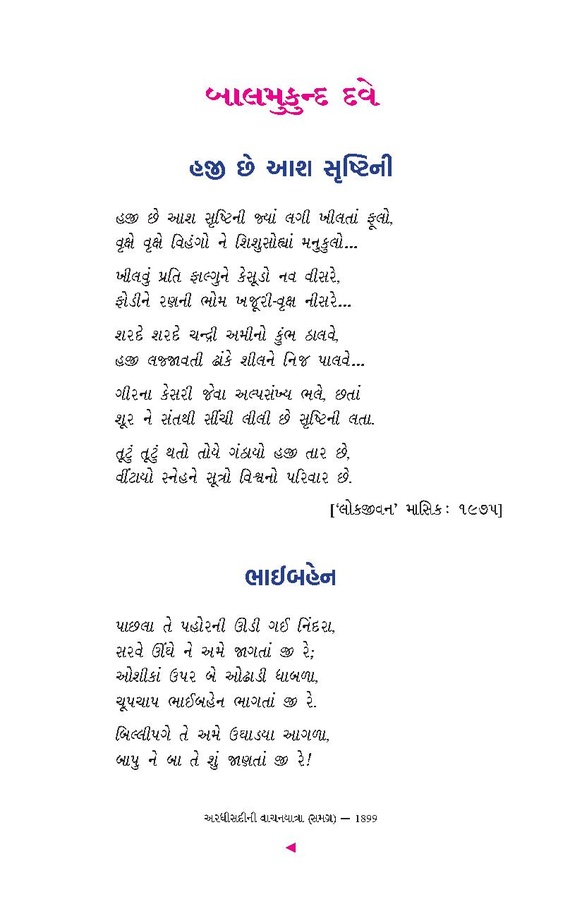 બાલમુકુન્દ દવે
હજી છે આશ સૃષ્ટિની
હજી છે આશ સૃષ્ટિની જ્યાં લગી ખીલતાં ફૂલો,
વૃક્ષે વૃક્ષે વિહંગો ને શિશુસોહ્યાં મનુકુલો...
ખીલવું પ્રતિ ફાલ્ગુને કેસૂડો નવ વીસરે,
ફોડીને રણની ભોમ ખજૂરી-વૃક્ષ નીસરે...
શરદે શરદે ચન્દ્રી અમીનો કુંભ ઠાલવે,
હજી લજ્જાવતી ઢાંકે શીલને નિજ પાલવે...
ગીરના કેસરી જેવા અલ્પસંખ્ય ભલે, છતાં
શૂર ને સંતથી સીંચી લીલી છે સૃષ્ટિની લતા.
તૂટું તૂટું થતો તોયે ગંઠાયો હજી તાર છે,
વીંટાયો સ્નેહને સૂત્રો વિશ્વનો પરિવાર છે.
[‘લોકજીવન’ માસિક: ૧૯૭૫]
ભાઈબહેન
પાછલા તે પહોરની ઊડી ગઈ નિંદરા,
સરવે ઊંઘે ને અમે જાગતાં જી રે;
ઓશીકાં ઉપર બે ઓઢાડી ધાબળા,
ચૂપચાપ ભાઈબહેન ભાગતાં જી રે.
બિલ્લીપગે તે અમે ઉઘાડયા આગળા,
બાપુ ને બા તે શું જાણતાં જી રે!
અરધીસદીની વાચનયાત્રા (સમગ્ર) — 1899